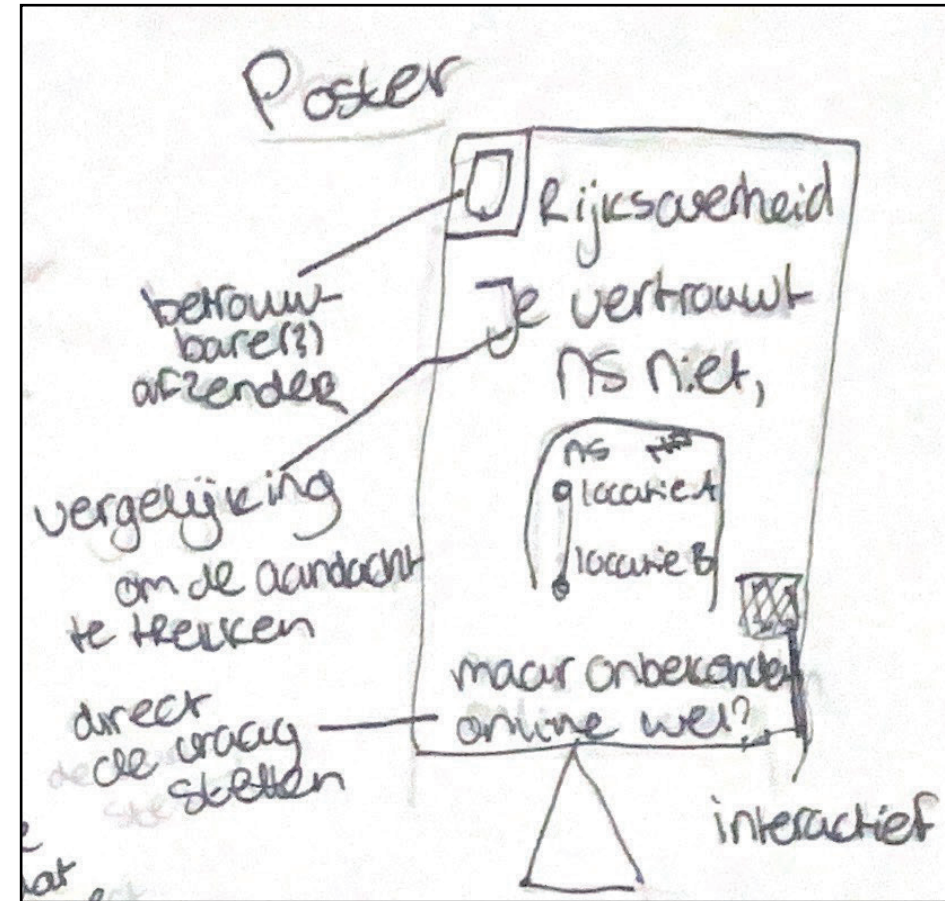 Poster
Rijksoverheid
Je vertrouwt
NS niet,
NS
locatie A
locatie B
maar onbekenden
online wel?
betrouw-
bare(?)
afzender
vergelijking
om de aandacht
te trekken
direct
de vraag
stellen
interactief